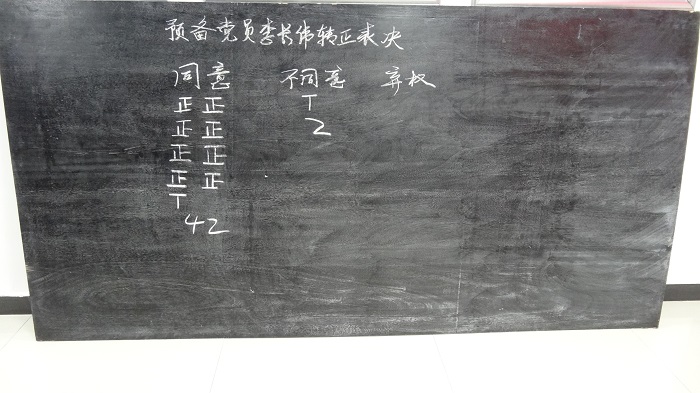 预备党员李长伟转正表决
同意 不同意 弃权
正 正 丅
正 正 2
正 正
正 正
丅
42